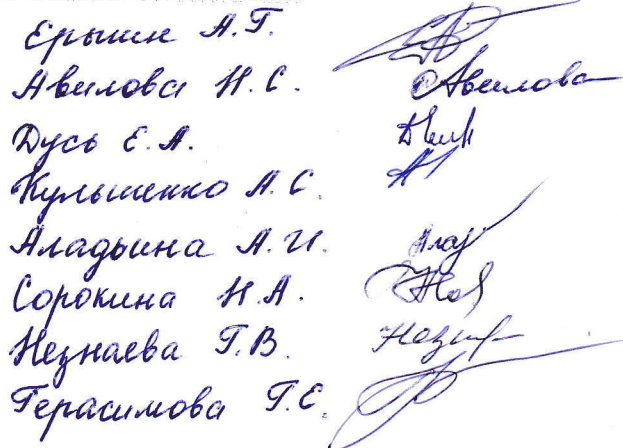 Ерышик А.Г.
Авилова Н.С. Авилова
Дусь Е.А.
Кулышенко А.С.
Аладьина А.И. Алад
Сорокина Н.А.
Незнаева Г.В.
Герасимова Г.С.